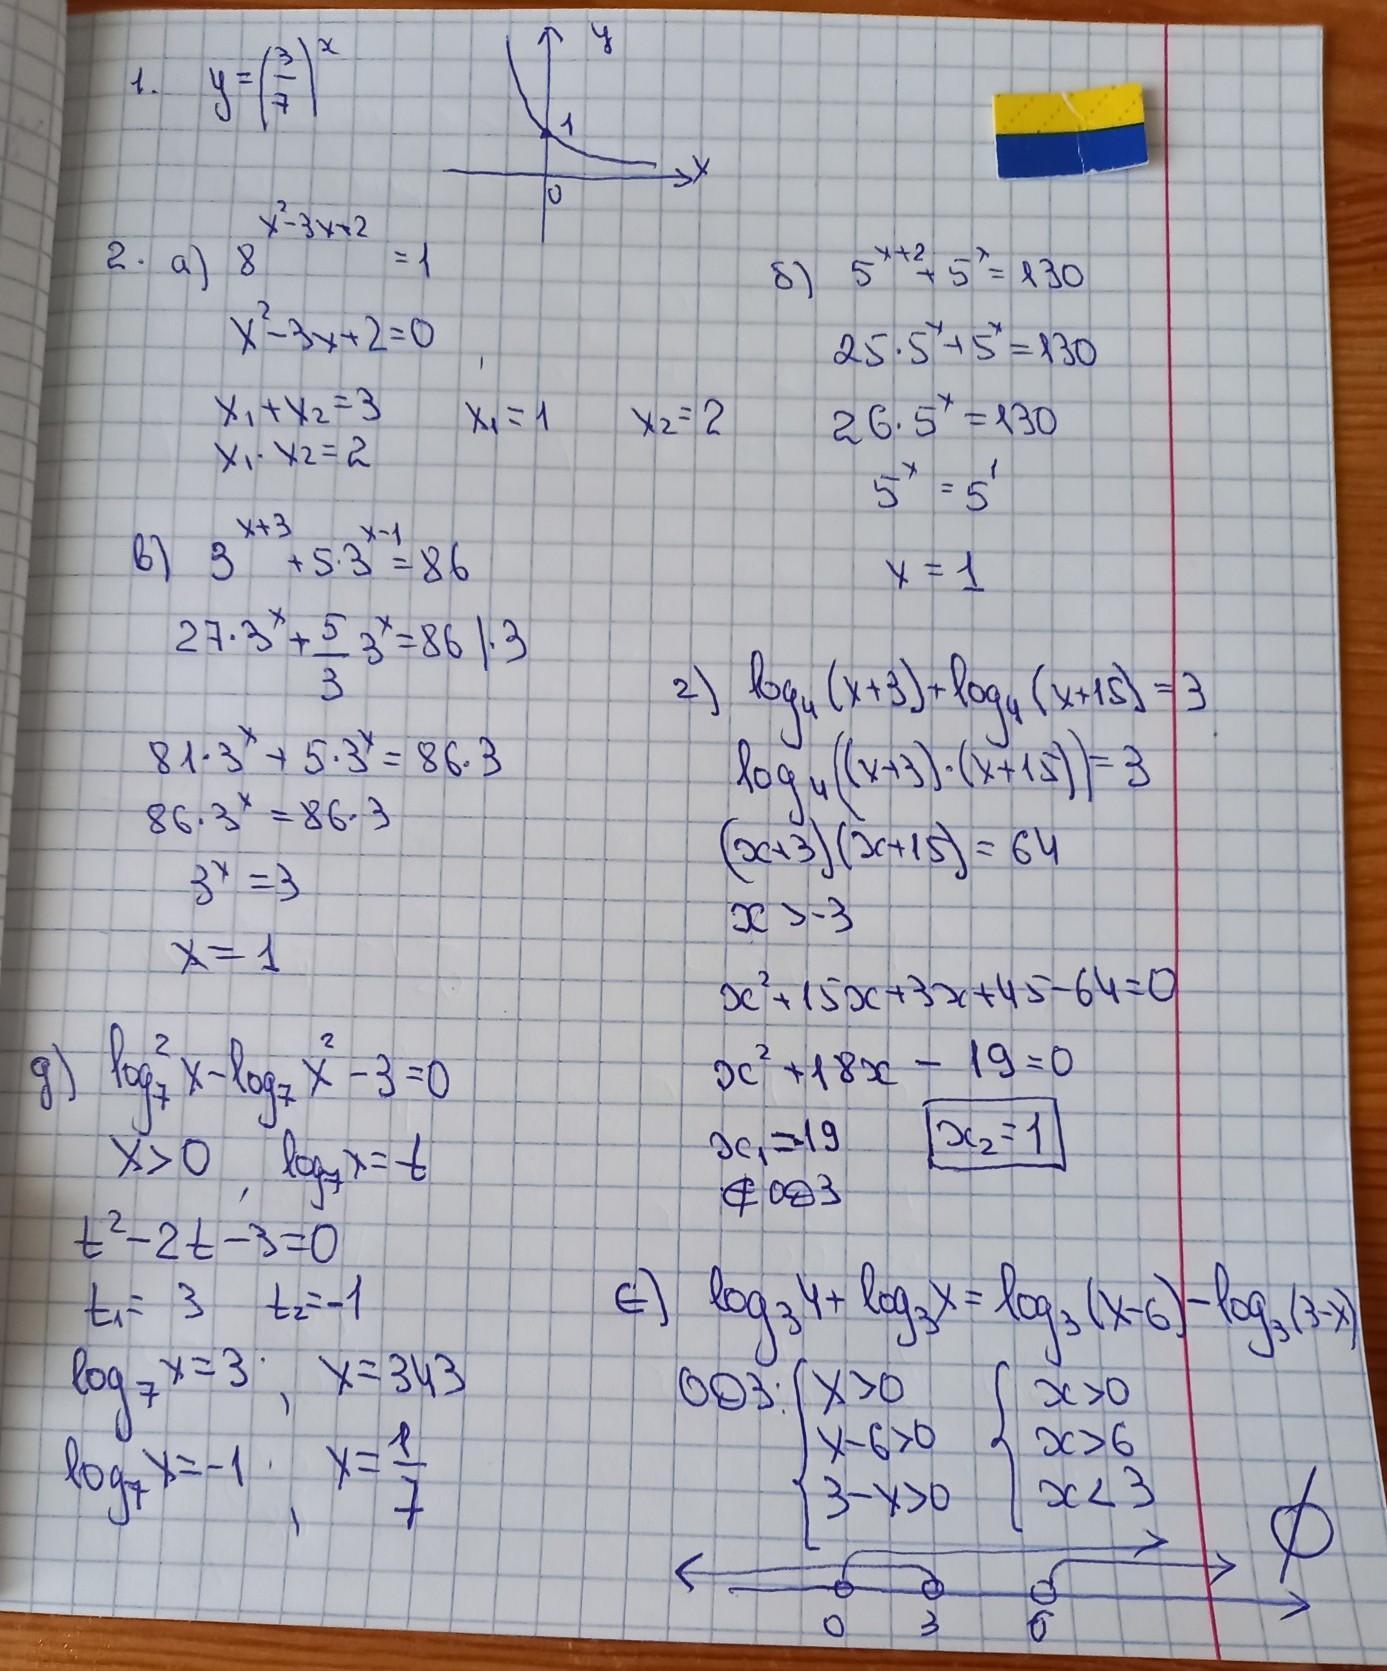 1. y = (3/7)^x
y
1
0
x
2. a) 8^(x²-3x+2) = 1
x²-3x+2=0
x₁+x₂=3
x₁·x₂=2
x₁=1 x₂=2
б) 5^(x+2) + 5^x = 130
25·5^x+5^x=130
26·5^x=130
5^x = 5^1
x = 1
в) 3^(x+3) + 5·3^(x-1) = 86
27·3^x + 5/3 3^x = 86 |·3
81·3^x + 5·3^x = 86·3
86·3^x = 86·3
3^x = 3
x = 1
г) log₄(x+3)+log₄(x+15)=3
log₄((x+3)·(x+15))=3
(x+3)(x+15) = 64
x > -3
x²+15x+3x+45-64=0
x²+18x - 19=0
x₁=-19 x₂=1
∉ ОДЗ
д) log₇²x-log₇x²-3=0
x>0, log₇x=t
t²-2t-3=0
t₁= 3 t₂=-1
log₇x=3, x=343
log₇x=-1, x=1/7
є) log₃4+log₃x=log₃(x-6)-log₃(3-x)
ОДЗ: { x>0 { x>0
x-6>0 x>6
3-x>0 x<3
∅
0 3 6